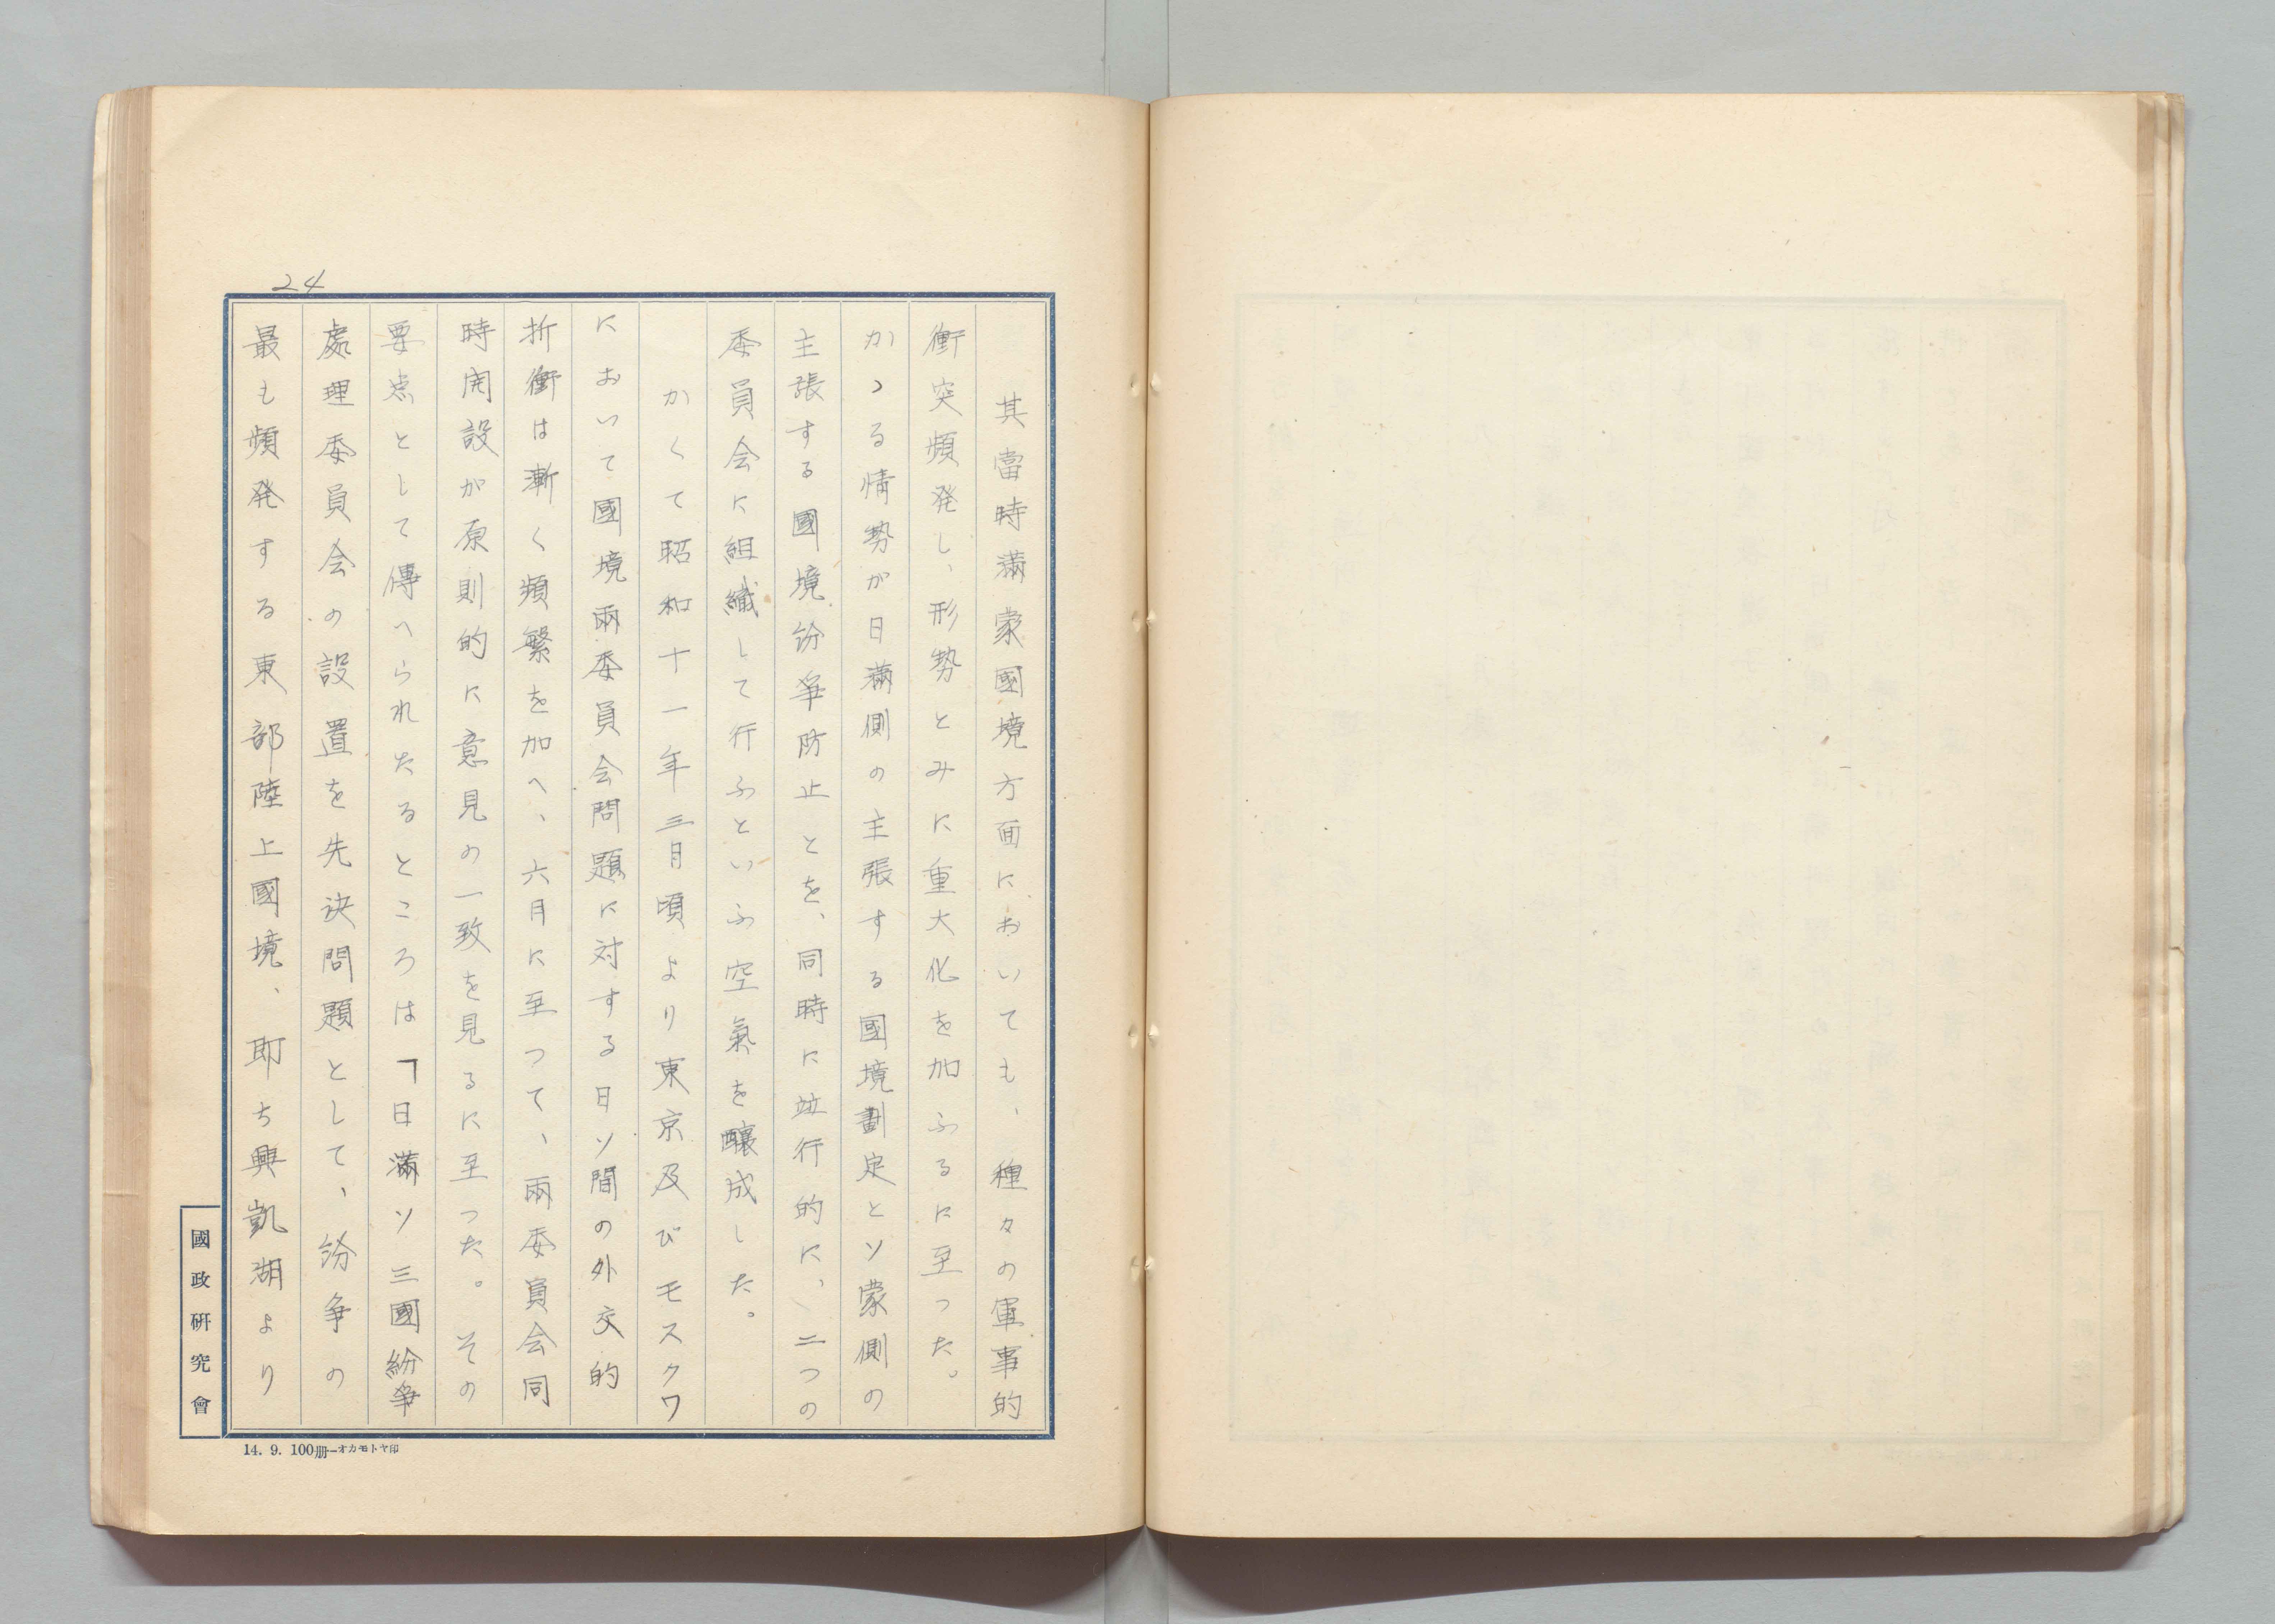 24
其當時滿蒙國境方面においても、種々の軍事的
衝突頻発し、形勢とみに重大化を加ふるに至った。
かゝる情勢が日滿側の主張する國境劃定とソ蒙側の
主張する國境紛爭防止とを、同時に竝行的に、二つの
委員会に組織して行ふといふ空氣を釀成した。
かくて昭和十一年三月頃より東京及びモスクワ
において國境兩委員会問題に対する日ソ間の外交的
折衝は漸く頻繁を加へ、六月に至つて、兩委員会同
時開設が原則的に意見の一致を見るに至つた。その
要点として傳へられたるところは「日滿ソ三國紛爭
處理委員会の設置を先決問題として、紛争の
最も頻発する東部陸上國境、即ち興凱湖より
國政研究會
14. 9. 100册—オカモトヤ印